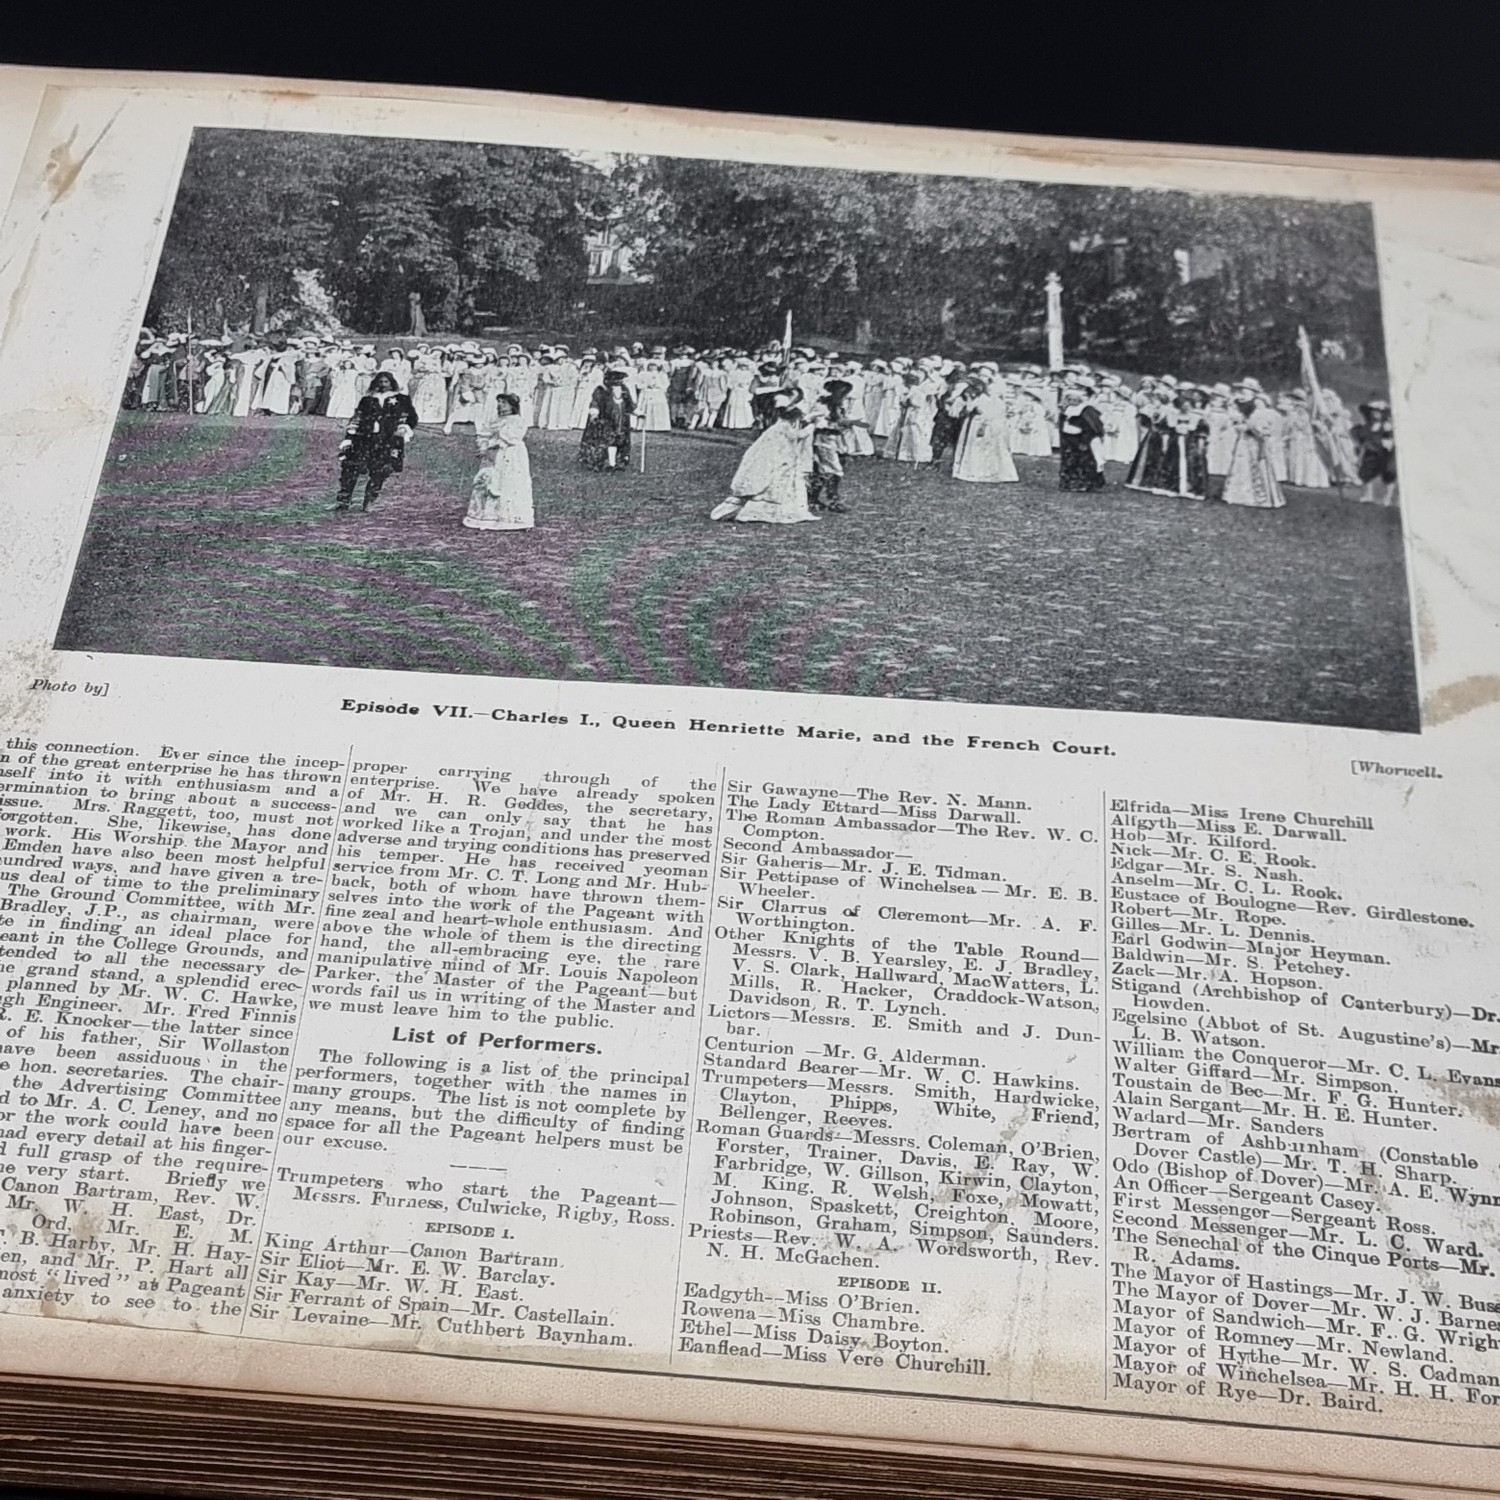 Photo by]
Episode VII.—Charles I., Queen Henriette Marie, and the French Court.
[Whorwell.
this connection. Ever since the incep-
of the great enterprise he has thrown
into it with enthusiasm and a
to bring about a success-
issue. Mrs. Raggett, too, must not
She, likewise, has done
work. His Worship the Mayor and
Emden have also been most helpful
ways, and have given a tre-
deal of time to the preliminary
The Ground Committee, with Mr.
Bradley, J.P., as chairman, were
in finding an ideal place for
in the College Grounds, and
to all the necessary de-
grand stand, a splendid erec-
planned by Mr. W. C. Hawke,
Engineer. Mr. Fred Finnis
E. Knocker—the latter since
of his father, Sir Wollaston
have been assiduous in the
hon. secretaries. The chair-
the Advertising Committee
to Mr. A. C. Leney, and no
for the work could have been
had every detail at his finger-
full grasp of the require-
very start. Briefly we
Canon Bartram, Rev. W.
Mr. W. H. East, Dr.
Ord, Mr. E. M.
B. Harby, Mr. H. Hay-
and Mr. P. Hart all
"lived" at Pageant
anxiety to see to the
proper carrying through of the
enterprise. We have already spoken
of Mr. H. R. Geddes, the secretary,
and we can only say that he has
worked like a Trojan, and under the most
adverse and trying conditions has preserved
his temper. He has received yeoman
service from Mr. C. T. Long and Mr. Hub-
back, both of whom have thrown them-
selves into the work of the Pageant with
fine zeal and heart-whole enthusiasm. And
above the whole of them is the directing
hand, the all-embracing eye, the rare
manipulative mind of Mr. Louis Napoleon
Parker, the Master of the Pageant—but
words fail us in writing of the Master and
we must leave him to the public.
List of Performers.
The following is a list of the principal
performers, together with the names in
many groups. The list is not complete by
any means, but the difficulty of finding
space for all the Pageant helpers must be
our excuse.
Trumpeters who start the Pageant—
Messrs. Furness, Culwicke, Rigby, Ross.
EPISODE I.
King Arthur—Canon Bartram.
Sir Eliot—Mr. E. W. Barclay.
Sir Kay—Mr. W. H. East.
Sir Ferrant of Spain—Mr. Castellain.
Sir Levaine—Mr. Cuthbert Baynham.
Sir Gawayne—The Rev. N. Mann.
The Lady Ettard—Miss Darwall.
The Roman Ambassador—The Rev. W. C.
Compton.
Second Ambassador—
Sir Gaheris—Mr. J. E. Tidman.
Sir Pettipase of Winchelsea—Mr. E. B.
Wheeler.
Sir Clarrus of Cleremont—Mr. A. F.
Worthington.
Other Knights of the Table Round—
Messrs. V. B. Yearsley, E. J. Bradley,
V. S. Clark, Hallward, MacWatters, L.
Mills, R. Hacker, Craddock-Watson,
Davidson, R. T. Lynch.
Lictors—Messrs. E. Smith and J. Dun-
bar.
Centurion—Mr. G. Alderman.
Standard Bearer—Mr. W. C. Hawkins.
Trumpeters—Messrs. Smith, Hardwicke,
Clayton, Phipps, White, Friend,
Bellenger, Reeves.
Roman Guards—Messrs. Coleman, O'Brien,
Forster, Trainer, Davis, E. Ray, W.
Farbridge, W. Gillson, Kirwin, Clayton,
M. King, R. Welsh, Foxe, Mowatt,
Johnson, Spaskett, Creighton, Moore,
Robinson, Graham, Simpson, Saunders.
Priests—Rev. W. A. Wordsworth, Rev.
N. H. McGachen.
EPISODE II.
Eadgyth—Miss O'Brien.
Rowena—Miss Chambre.
Ethel—Miss Daisy Boyton.
Eanflead—Miss Vere Churchill.
Elfrida—Miss Irene Churchill
Alfgyth—Miss E. Darwall.
Hob—Mr. Kilford.
Nick—Mr. C. E. Rook.
Edgar—Mr. S. Nash.
Anselm—Mr. C. L. Rook.
Eustace of Boulogne—Rev. Girdlestone.
Robert—Mr. Rope.
Gilles—Mr. L. Dennis.
Earl Godwin—Major Heyman.
Baldwin—Mr. S. Petchey.
Zack—Mr. A. Hopson.
Stigand (Archbishop of Canterbury)—Dr.
Howden.
Egelsine (Abbot of St. Augustine's)—Mr
L. B. Watson.
William the Conqueror—Mr. C. L. Evans
Walter Giffard—Mr. Simpson.
Toustain de Bec—Mr. F. G. Hunter.
Alain Sergant—Mr. H. E. Hunter.
Wadard—Mr. Sanders
Bertram of Ashburnham (Constable
Dover Castle)—Mr. T. H. Sharp.
Odo (Bishop of Dover)—Mr. A. E. Wynn
An Officer—Sergeant Casey.
First Messenger—Sergeant Ross.
Second Messenger—Mr. L. C. Ward.
The Senechal of the Cinque Ports—Mr.
R. Adams.
The Mayor of Hastings—Mr. J. W. Buss
The Mayor of Dover—Mr. W. J. Barnes
Mayor of Sandwich—Mr. F. G. Wright
Mayor of Romney—Mr. Newland.
Mayor of Hythe—Mr. W. S. Cadman
Mayor of Winchelsea—Mr. H. H. For
Mayor of Rye—Dr. Baird.